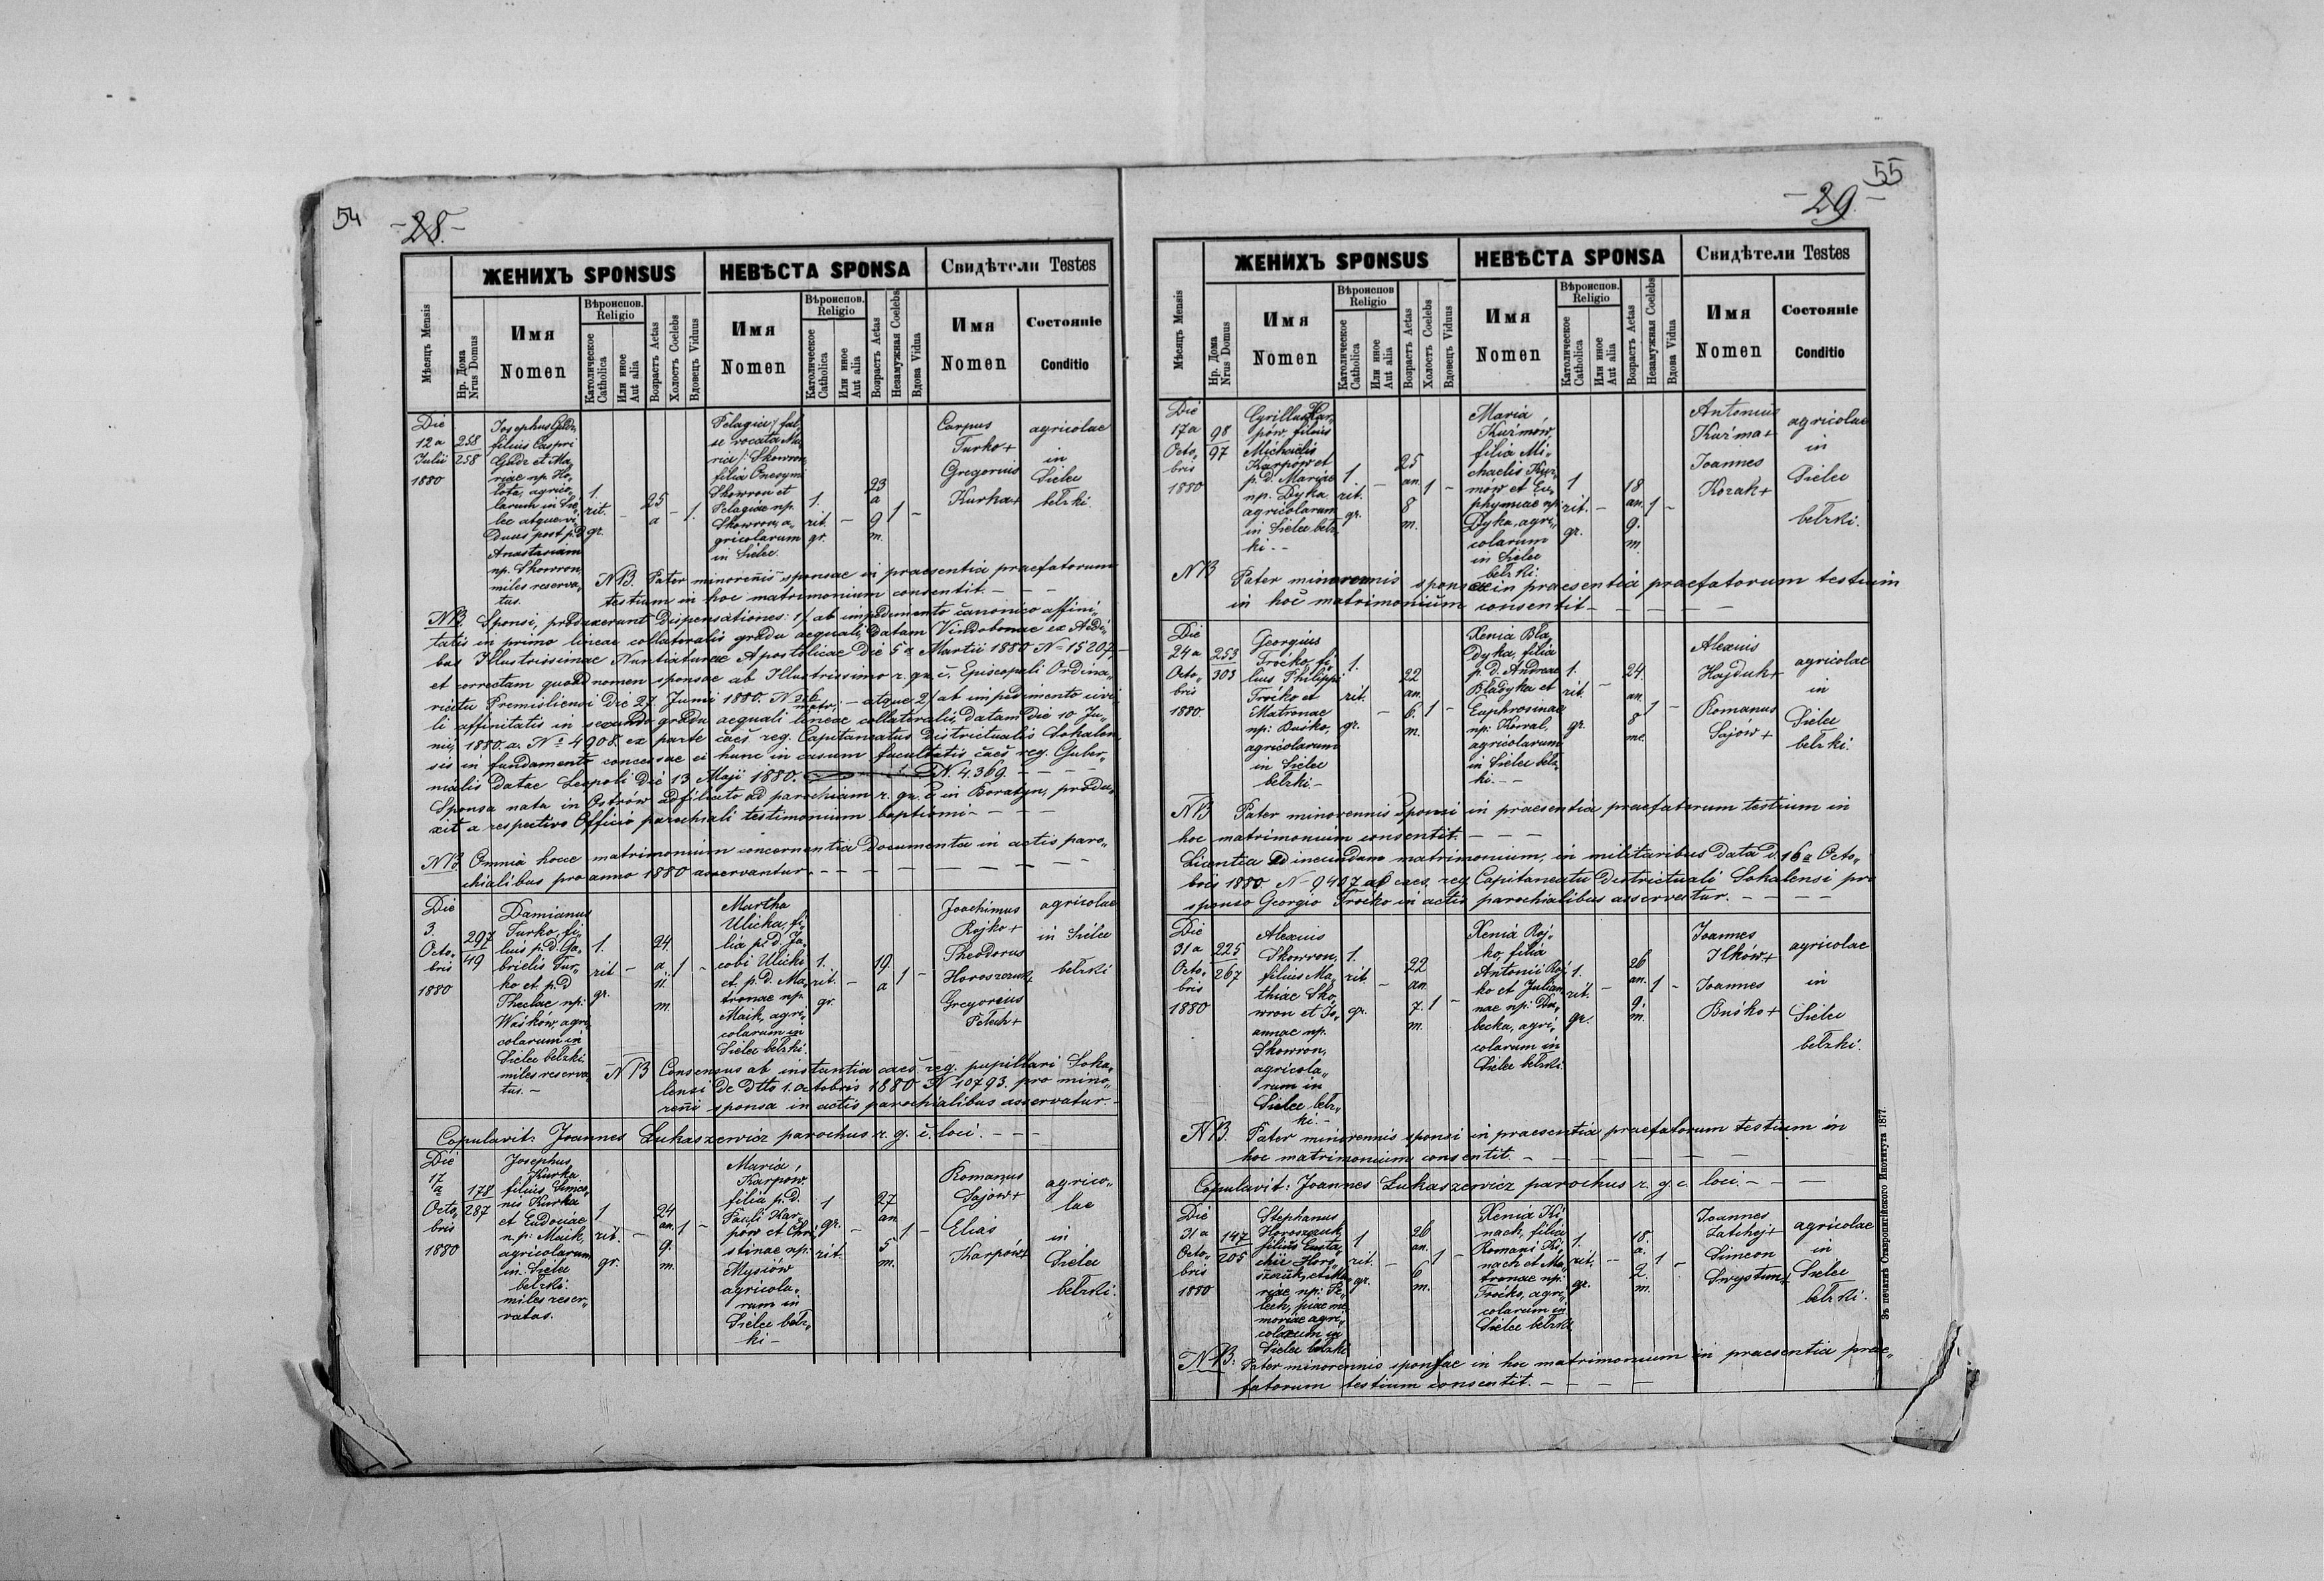 54
-28.-
ЖЕНИХЪ SPONSUS
НЕВѢСТА SPONSA
Свидѣтели Testes
Мѣсяцъ Mensis
Нр. Дома
Nrus Domus
Имя
Nomen
Вѣроиспов.
Religio
Католическое
Catholica
Или иное
Aut alia
Возрастъ Aetas
Холостъ Coelebs
Вдовецъ Viduus
Имя
Nomen
Вѣроиспов.
Religio
Католическое
Catholica
Или иное
Aut alia
Возрастъ Aetas
Незамужная Coelebs
Вдова Vidua
Имя
Nomen
Состоянiе
Conditio
Die
12 a
Julii
1880
258
258
Josephus
filius Caspri
et Ma„
riae np. Ho„
lota, agrico„
larum in Sie„
lec atque vi„
duus post p.d.
Anastasiam
np. Skowron,
miles reserva„
tus.
1.
rit.
gr.
-
25
a
-
1.
Pelagia / fal„
se vocata Ma„
ria /: Skowron,
filia Onesymi
Skowron et
Pelagiae np.
Skowron, a„
gricolarum
in Sielec.
1.
rit.
gr.
-
23
a
9
m.
1
-
Carpus
Turko +
Gregorius
Kurka +
agricolae
in
Sielec
bełzki.
NB. Pater minorenis sponsae in praesentia praefatorum
testium in hoc matrimonium consentit. - - -
NB. Sponsi, produxerunt Dispensationes: 1/ ab impedimento canonico affini„
tatis in primo lineae collateralis gradu aequali, datam Vindobonae ex Aedi„
bus Illustrissimae Nuntiaturae Apostolicae die 5 a Martii 1880 № 15207. -
et correctam quoad nomen sponsae ab Illustrissimo r. gr. c. Episcopali Ordina„
riatu Premisliensi die 27. Junii 1880. N. - atque 2/ ab impedimento civi„
li affinitatis in secundo gradu aequali lineae collateralis, datam die 10 Ju„
nii 1880. a. № 4908. ex parte caes. reg. Capitaneatus Districtualis Sokalen„
sis in fundamento concessae ei hunc in casum facultatis caes. reg. Guber„
nialis datae Leopoli die 13 Maji 1880. N. 4.369. - - - -
Sponsa nata in Ostrów adfiliato ad parochiam r. gr. c. in Boratyn, produ„
xit a respectivo Officio parochiali testimonium baptismi - - - -
NB. Omnia hocce matrimonium concernentia documenta in actis paro„
chialibus pro anno 1880 asservantur. - - - - - - -
Die
3.
Octo„
bris
1880
297
49
Damianus
Turko, fi„
lius p.d. Ga„
brielis Tur„
ko et p.d
Theclae np:
Waśków, agri„
colarum in
Sielec bełzki
miles reserva„
tus. -
1.
rit
gr.
-
24.
a
11.
m.
1
-
Martha
Ulicka, fi„
lia p.d. Ja„
cobi Ulicki
et p.d. Ma„
tronae np.
Maik, agri„
colarum in
Sielec bełzki.
1.
rit.
gr.
-
19.
a
1
-
Joachimus
Rojko +
Theodorus
Horoszczuk +
Gregorius
Pełech +
agricolae
in Sielec
bełzki
NB Consensus ab instantia caes. reg. pupillari Soka„
lensi de dtto 1. Octobris 1880 N 10793. pro mino„
reni sponsa in actis parochialibus asservatur. -
Copulavit: Joannes Łukaszewicz parochus r. g. c. loci. - - -
Die
17
a
Octo„
bris
1880
178
287
Josephus
Kurka
filius Simeo„
nis Kurka
et Eudociae
n.p: Maik,
agricolarum
in Sielec
bełzki.
miles reser„
vatus.
1
rit.
gr.
-
24
an.
9.
m.
1
-
Maria,
Karpow,
filia p.d.
Pauli Kar„
pów et Chri„
stinae np:
Mysiów
agricola„
rum in
Sielec bełz„
ki -
1
gr.
rit.
-
27
an
5
m.
1
-
Romanus
Sajów +
Elias
Karpów +
agrico„
lae
in
Sielec
bełzki.
55
-29.-
ЖЕНИХЪ SPONSUS
НЕВѢСТА SPONSA
Свидѣтели Testes
Мѣсяцъ Mensis
Нр. Дома
Nrus Domus
Имя
Nomen
Вѣроиспов
Religio
Католическое
Catholica
Или иное
Aut alia
Возрастъ Aetas
Холостъ Coelebs
Вдовецъ Viduus
Имя
Nomen
Вѣроиспов.
Religio
Католическое
Catholica
Или иное
Aut alia
Возрастъ Aetas
Незамужная Coelebs
Вдова Vidua
Имя
Nomen
Состоянiе
Conditio
Die
17 a
Octo„
bris
1880
98
97
Cyrillus Kar„
pów, filius
Michaelis
Karpów et
p.d. Mariae
np. Dyka
agricolarum
in Sielec bełz„
ki. - -
1.
rit.
gr.
-
25
an.
8
m.
1
-
Maria,
Kuźmow,
filia Mi„
chaelis Kuź„
mów et Eu„
phymiae np:
Dyka, agri„
colarum
in Sielec
bełzki.
1
rit.
gr.
-
18
an.
9.
m.
1
-
Antonius
Kuźma +
Joannes
Kozak +
agricolae
in
Sielec
bełzki.
NB Pater minorennis sponsae in praesentia praefatorum testium
in hoc matrimonium consentit - - - -
Die
24 a
Octo„
bris
1880.
253
303
Georgius
Troćko, fi„
lius Philippi
Troćko et
Matronae
np: Buśko,
agricolarum
in Sielec
bełzki. -
1.
rit.
gr.
22
an.
6.
m.
1
-
Xenia Bła„
dyka, filia
p.d. Andreae
Bładyka et
Euphrosinae
np: Kowal,
agricolarum
in Sielec bełz„
ki. - -
1.
rit.
gr.
-
24.
an.
8
me.
1
-
Alexius
Hajduk +
Romanus
Sajów +
agricolae
in
Sielec
bełzki.
NB Pater minorennis Sponsi in praesentia praefatorum testium in
hoc matrimonium consentit. - - -
Licentia ad ineundum matrimonium, in militaribus data d. 16 a Octo„
bris 1880. N 9407 ab caes. reg. Capitaneatu Districtuali Sokalensi pro
sponso Georgio Troćko in actis parochialibus asservatur. - - - -
Die
31 a
Octo„
bris
1880
225
267
Alexius
Skowron,
filius Ma„
thiae Sko„
wron et Jo„
annae np.
Skowron,
agricola„
rum in
Sielec bełz„
ki. -
1.
rit.
gr.
-
22
an.
7.
m.
1
-
Xenia Roj„
ko, filia
Antonii Roj„
ko et Julian„
nae np: Du„
becka, agri„
colarum in
Sielec bełzki.
1.
rit.
gr.
-
26
an.
9.
m.
1
-
Joannes
Ilków +
Joannes
Buśko +
agricolae
in
Sielec
bełzki.
NB. Pater minorennis sponsi in praesentia praefatorum testium in
hoc matrimonium consentit. - - - - - -
Copulavit: Joannes Łukaszewicz parochus r. g. c. loci. - - -
Die
31 a
Octo„
bris
1880
147
205
Stephanus
Horoszczuk
filius Eusta„
chii Horo„
szczuk, et Ma„
riae, np: Pe„
łech, piae me„
moriae agri„
colarum in
Sielec bełzki
1
rit.
gr.
-
26
an.
6
m.
1
-
Xenia Ki„
nach, filia
Romani Ki„
nach et Ma„
tronae np:
Troćko, agri„
colarum in
Sielec bełzki
1.
rit.
gr.
-
18.
a.
2.
m.
1
-
Joannes
Łatchoj +
Simeon
Swystun +
agricolae
in
Sielec
bełzki.
NB. Pater minorennis sponsae in hoc matrimonium in praesentia prae„
fatorum testium consentit. - - - -
Зъ печатнѣ Ставропигійского Института 1877.